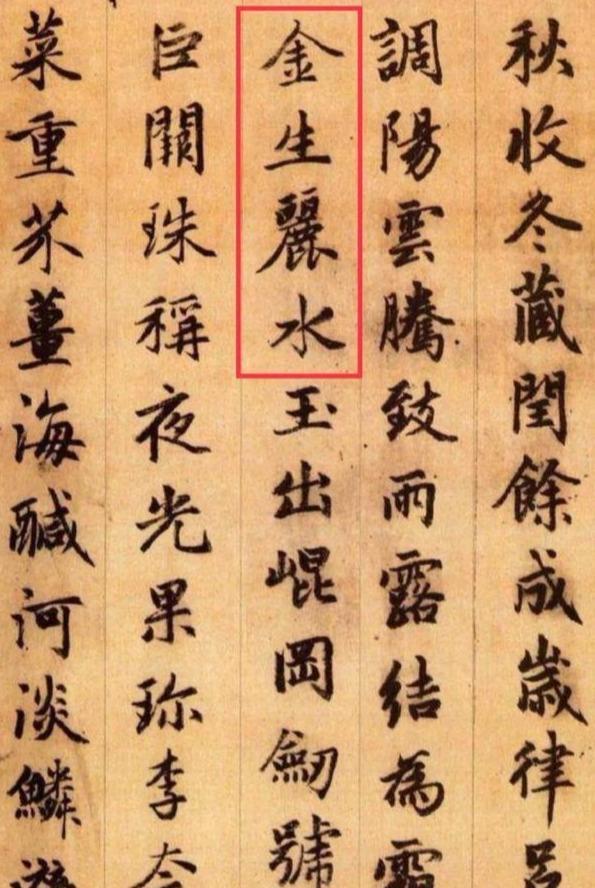 秋收冬藏閏餘成歲律呂
調陽雲騰致雨露結為霜
金生麗水玉出崐岡劒號
巨闕珠稱夜光果珍李柰
菜重芥薑海醎河淡鱗潛